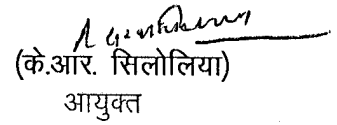 (के.आर. सिलोलिया)
आयुक्त